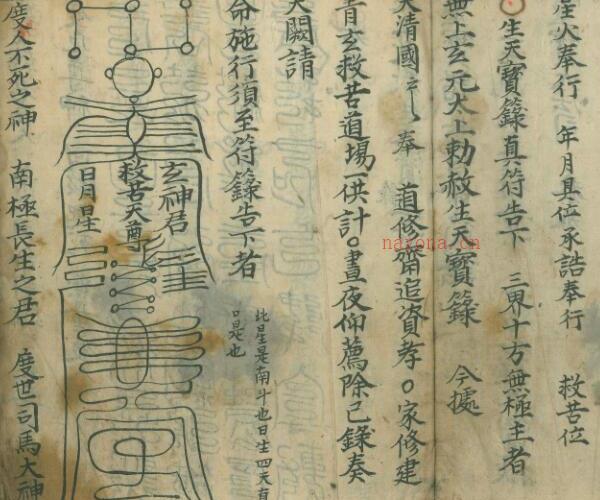 星火奉行 年月具位承誥奉行 救苦位
生天寶籙真符告下 三界十方無極主者
無上玄元太上勅赦生天寶籙 今據
大清國 奉 道修齋追資孝○家修建
青玄救苦道場一供計○晝夜仰薦除已錄奏
天闕請
命施行須至符籙告下者
此星是南斗也日生四天直
口是也
玄神君
救苦天尊
日月星
度人不死之神 南極長生之君 度世司馬大神
narona.cn